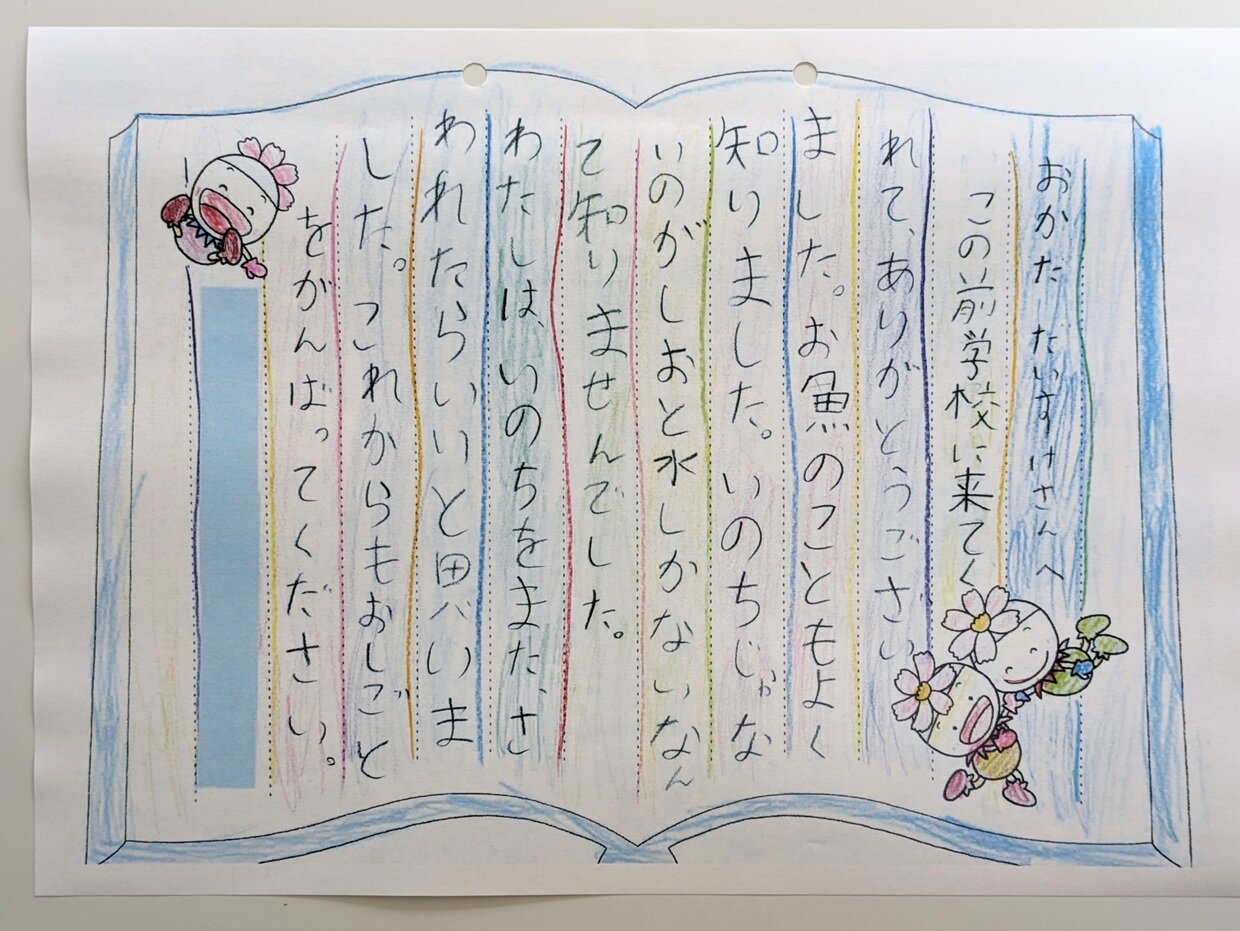 おかた たいすけさんへ
この前学校に来てく
れて、ありがとうござい
ました。お魚のこともよく
知りました。いのちじゃな
いのがしおと水しかないなん
て知りませんでした。
わたしは、いのちをまた、さ
われたらいいと思いま
した。これからもおしごと
をがんばってください。